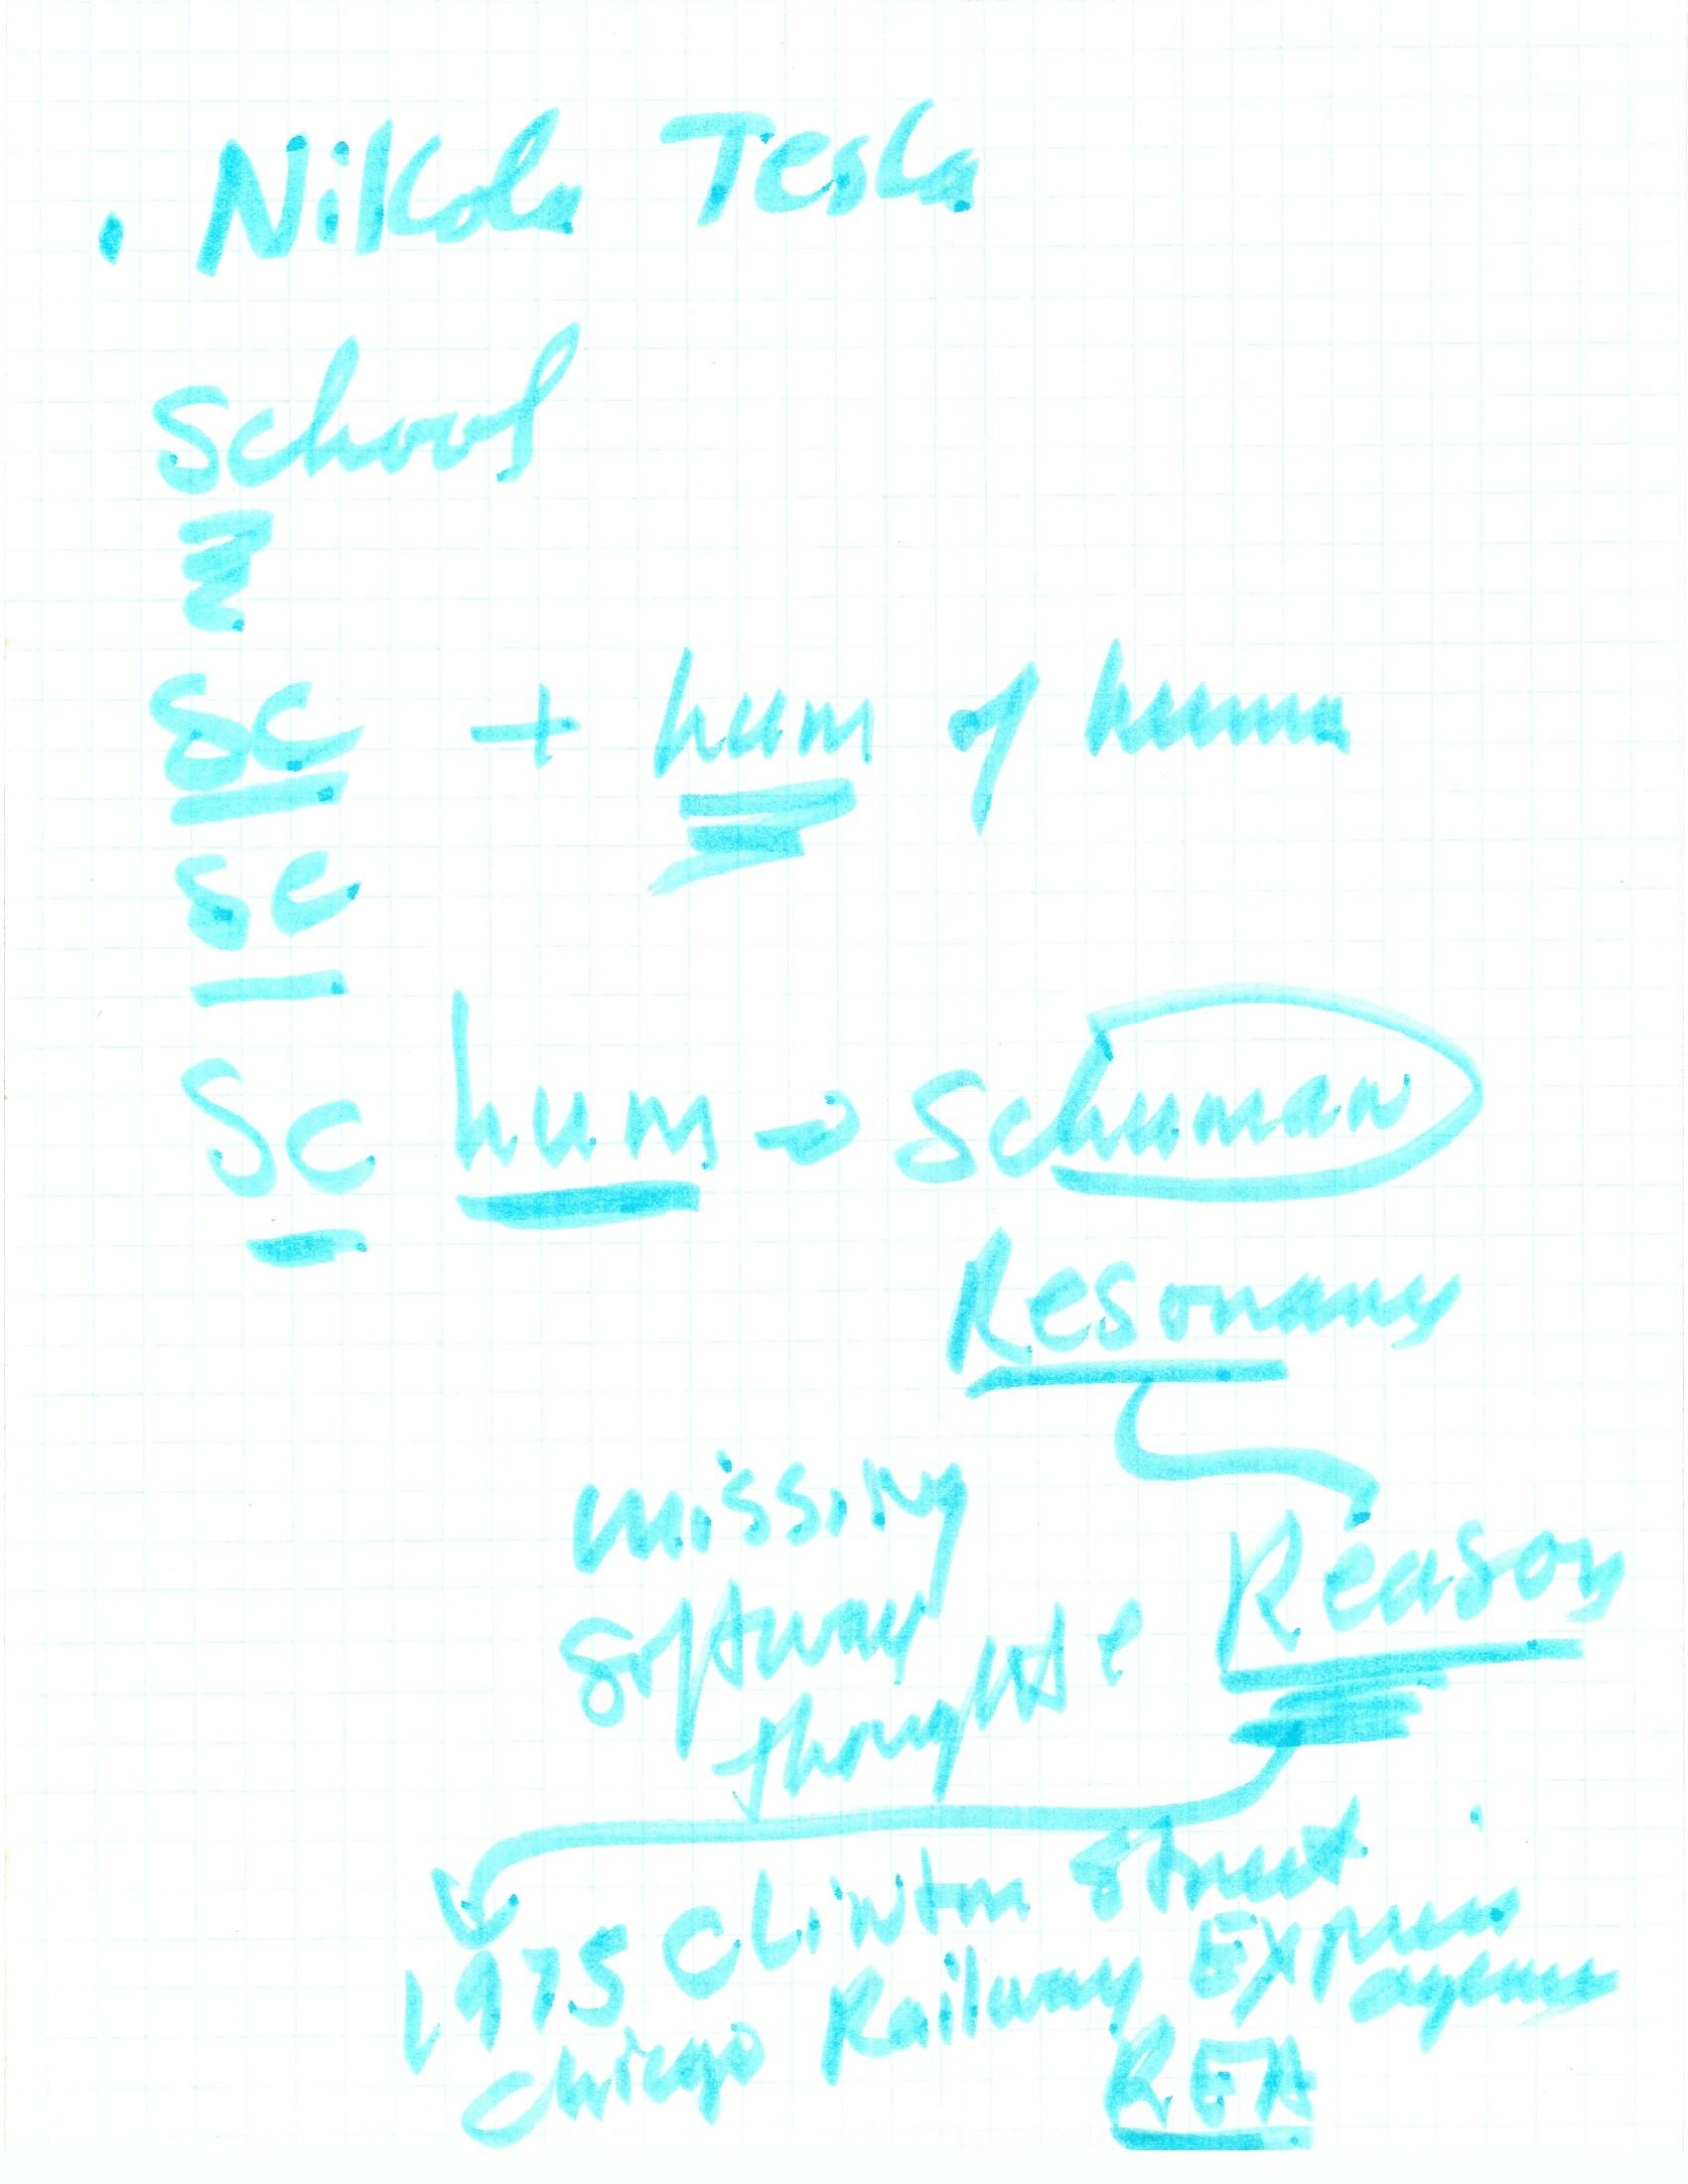 . Nikola Tesla
School
SC + hum of huma
SC
SC hum → Schuman
Resonance
missing
Software
thoughts e Reason
1975 Clinton Street
Chicago Railway Express
agency
REA